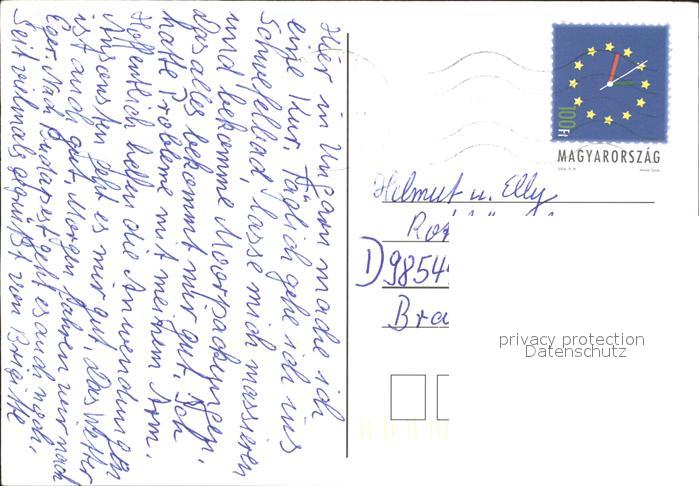 Hier in Ungarn mache ich
eine Kur. Täglich gehe ich ins
Schwefelbad, lasse mich massieren
und bekomme Moorpackungen.
Das alles bekommt mir gut. Ich
hatte Probleme mit meinem Arm.
Hoffentlich helfen die Anwendungen
Ansonsten geht es mir gut, das Wetter
ist auch gut. Morgen fahren wir nach
Eger. Nach Budapest geht es auch noch.
Seit vielmals gegrüßt von Brigitte
100Ft
MAGYARORSZÁG
Helmut u. Elly
D) 9854
Bra
privacy protection
Datenschutz